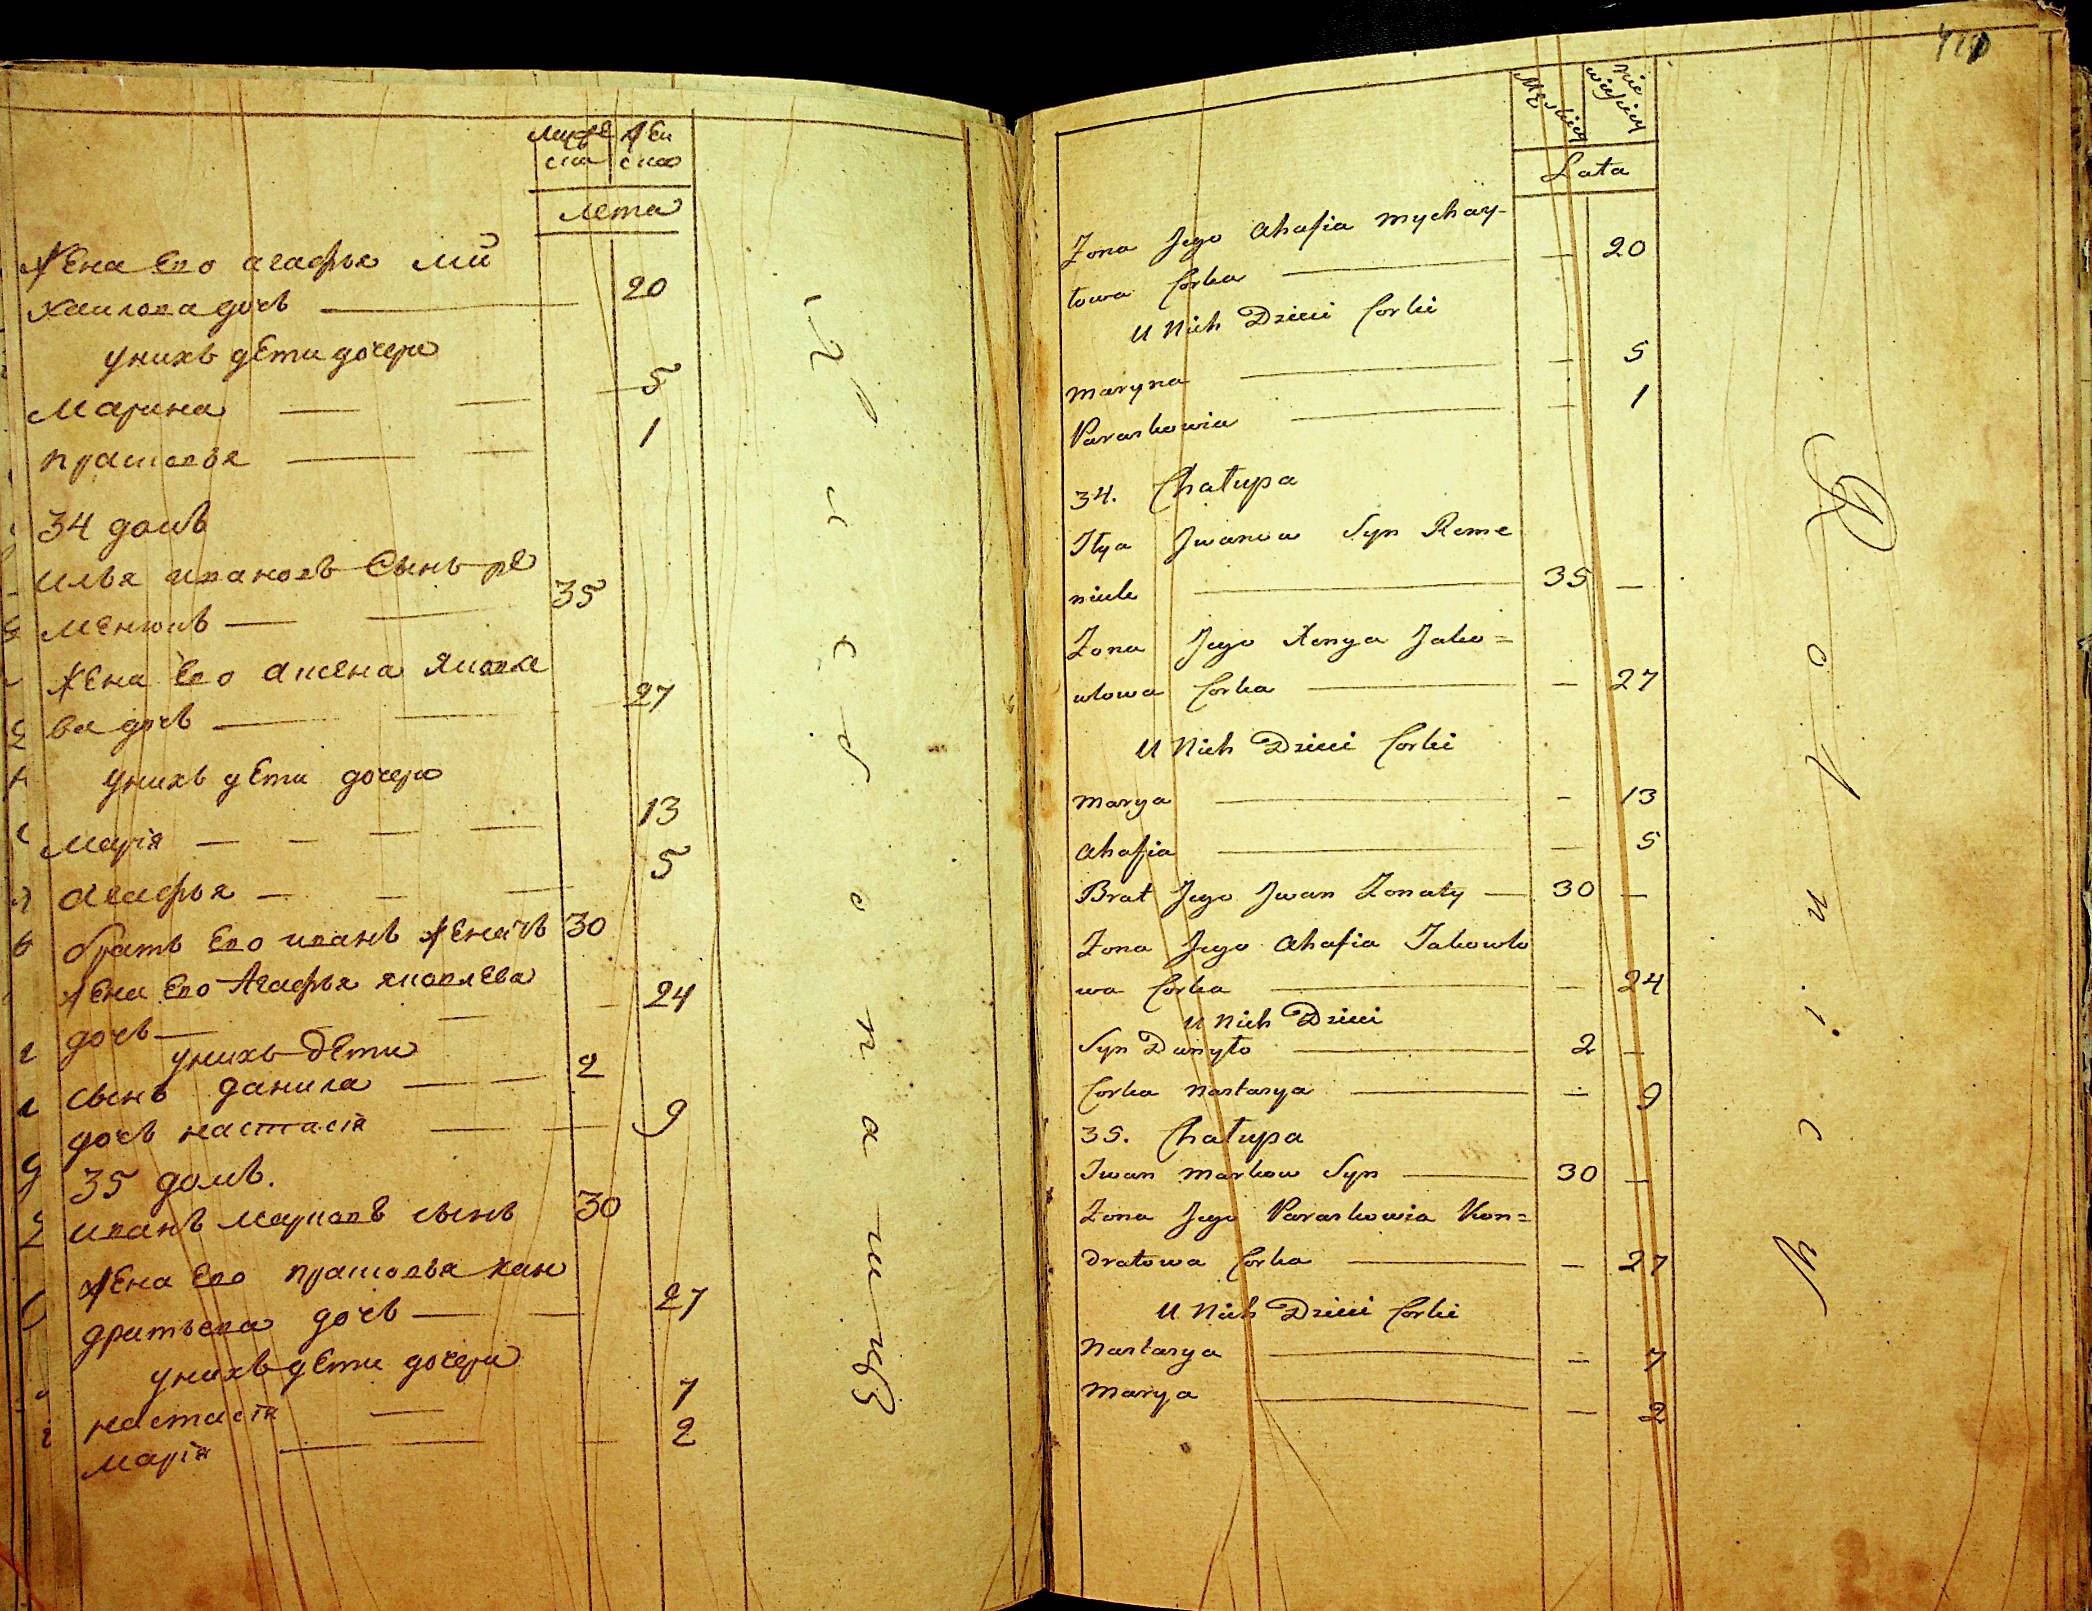 муже
ска
жен
ска
лета
жена ево агафья ми
хаилова дочь 20
у нихъ дети дочери
марина 5
прасковья 1
34 домъ
илья ивановъ сынъ ре
менюкъ 35
жена ево аксена яковле
ва дочь 27
у нихъ дети дочери
марія 13
агафья 5
братъ ево иванъ женатъ 30
жена ево агафья яковлева
дочь 24
у нихъ дети
сынъ данила 2
дочь настасія 9
35 домъ.
иванъ марковъ сынъ 30
жена ево прасковья кан
дратьева дочь 27
у нихъ дети дочери
настасія 7
марія 2
хлебопашецъ
410
Męskiey
nie
wieściey
Lata
Zona Jego Ahafia Mychay-
łowa Corka — 20
U Nich Dzieci Corki
Maryna — 5
Paraskowia — 1
34. Chałupa
Ilya Jwanow Syn Reme
niuk 35 —
Zona Jego Xenya Jako=
wlowa Corka — 27
U Nich Dzieci Corki
Marya — 13
Ahafia — 5
Brat Jego Jwan Zonaty — 30 —
Zona Jego Ahafia Jakowlo
wa Corka — 24
U Nich Dzieci
Syn Danyło 2 —
Corka Nastasya — 9
35. Chałupa
Iwan Markow Syn 30 —
Zona Jego Paraskowia Kon=
dratowa Corka — 27
U Nich Dzieci Corki
Nastasya — 7
Marya — 2
Rolnicy